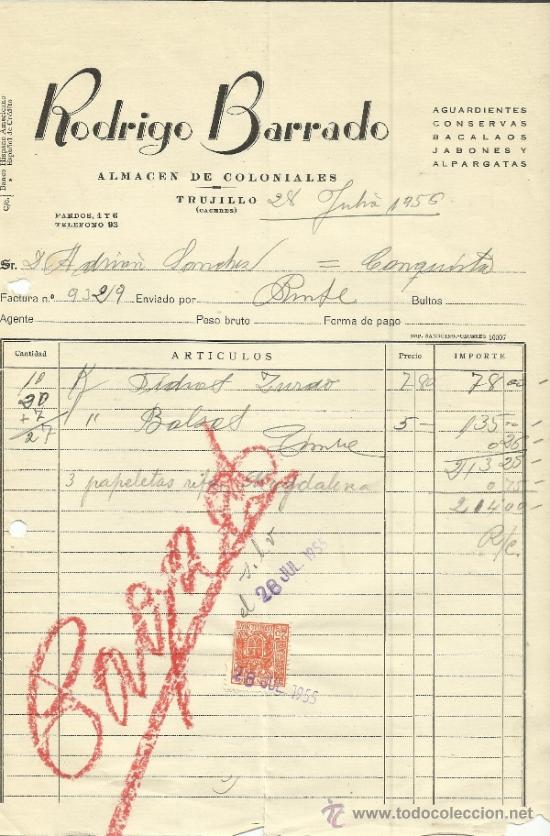 c/c. Banco Hispano Americano
Español de Crédito
Rodrigo Barrado
AGUARDIENTES
CONSERVAS
BACALAOS
JABONES Y
ALPARGATAS
ALMACEN DE COLONIALES
TRUJILLO
(CACERES)
28 Julio 1955
PARDOS, 4 Y 6
TELEFONO 93
Sr. D. Adrian Sanchez = Conquista
Factura n.º 93219 Enviado por Bultos
Agente Peso bruto Forma de pago
Cantidad ARTICULOS Precio IMPORTE
10 K Fideos 7 80 78 00
20
+7 " 5 - 135 -
27 Timbre 0 25
213 25
3 papeletas rifa Magdalena 0 75
214 00
28 JUL 1955
28 JUL 1955
todocoleccion
www.todocoleccion.net